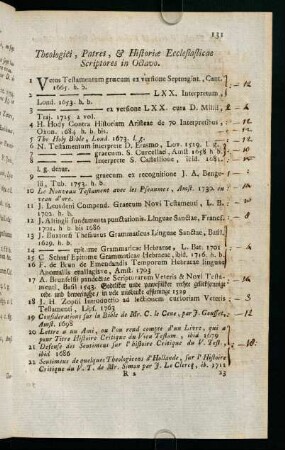 131
Theologici, Patres, & Historiæ Ecclesiasticæ
Scriptores in Octavo.
1 Vetus Testamentum græcum ex versione Septuagint, Cant.
1665. h. b.
2 LXX. Interpretum,
Lond. 1653. h. b.
3 ex versione LXX. cura D. Millii,
Traj. 1725. 2 vol.
4 H. Hody Contra Historiam Aristeæ de 70 Interpretibus,
Oxon. 1684 h. b.
5 The Holy Bible, Lond. 1673. l. g.
6 N. Testamentum interprete D. Erasmo, Lov. 1519. l. g.
7 græcum S. Curcellæi, Amst. 1658 h. b.
8 interprete S. Castellione, ibid. 1681.
l. g. deaur.
9 græcum ex recognitione J. A. Bengelii,
Tub. 1753. h. b.
10 Le Nouveau Testament avec les Pseaumes, Amst. 1730. en
veau d'ore.
11 J. Leusdeni Compend. Græcum Novi Testamenti, L. B.
1702. h. b.
12 J. Altingii fundamenta punctationis Linguæ Sanctæ, Francf.
1701. h. b
13 J. Buxtorfi Thesaurus Grammaticus Linguæ Sanctæ, Basil,
1629. h. b
14 epitome Grammaticæ Hebraeae, L. Bat. 1701
15 C. Schotf Epitome Grammaticæ Hebraeæ, ibid. 1716. h. b.
16 F. de Brun de Emendandis Temporum Hebraeæ linguæ
Anomaliis enallagisve, Amst. 1703
18 J. H. Zopfi Introductio ad lectionem cursoriam Veteris
Testamenti, Lips. 1763
19 Considerations sur la Bible de Mr. C. le Cene, par J. Gousset,
Amst. 1698
20 Lettre a un Ami, ou l'on rend compte d'un Livre, qui a
pour Titre Histoire Critique du Vieu Testam, ibid 1679
21 Defense des Sentimens sur l'histoire Critique du V. Test.
ibid 1686
22 Sentimens de quelques Theologiens d'Hollande, sur l'Histoire
Critique du V. T. de Mr. Simon par J. Le Clercq, ib. 1711
R 2 23